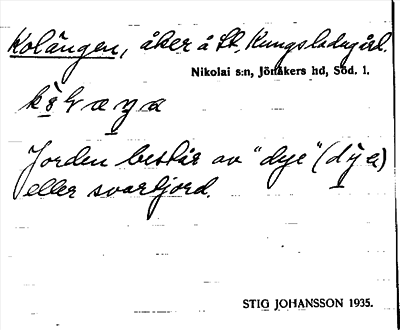 Kolängen, åker å St. Kungsladugård.
Nikolai s:n, Jönåkers hd, Söd. l.
Jorden består av "dye" (dya)
eller svartjord.
STIG JOHANSSON 1935.